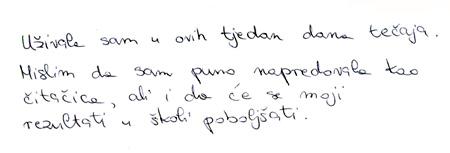 Uživala sam u ovih tjedan dana tečaja.
Mislim da sam puno napredovala kao
čitačica, ali i da će se moji
rezultati u školi poboljšati.